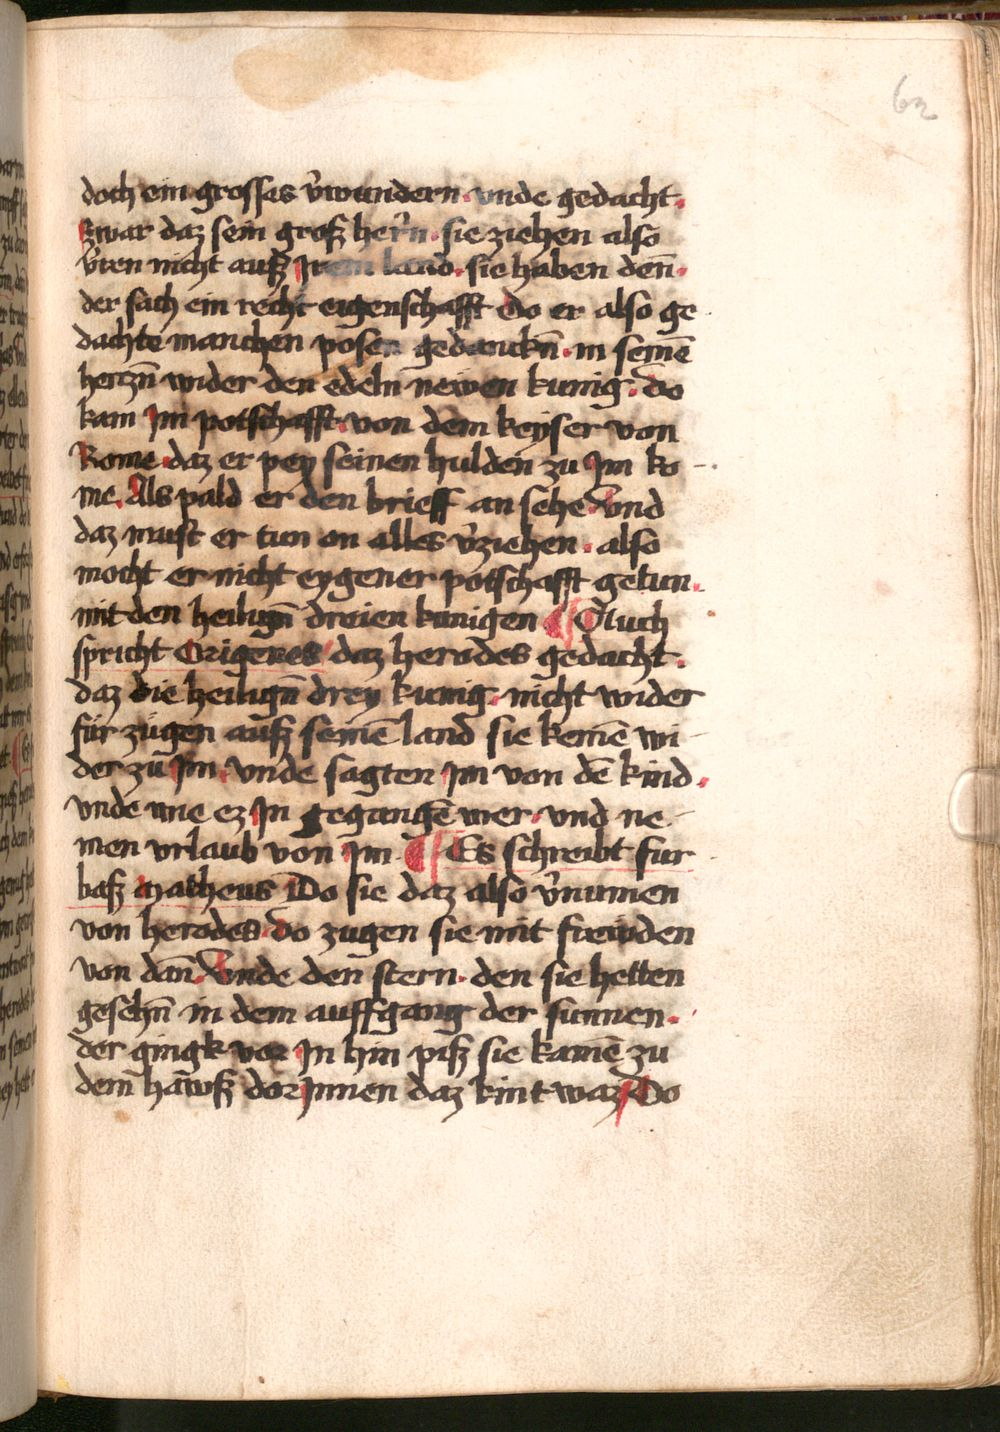 62
doch ein grosses v̉wundern · vnde gedacht ·
zwar daz sein groß her̉n · sie ziehen also
v̉ren nicht auß Jrem land · sie haben den̄ ·
der sach ein recht eigenschafft Do er also ge
dachte manchen posen gedanckn̄ · in seinē
hertzn̄ wider den edeln newen kunig · do
kam Jm potschafft · von dem keyser von
Rome · daz er pey seinen hulden zu Jm ko -
me · Als pald er den brieff an sehe · vnd
daz must er tun on alles v̉ziehen · also
mocht er nicht eygener potschafft getun ·
mit den heilign̄ dreien kunigen ¶ Auch
spricht Origenes / daz herodes gedacht ·
daz die heilign̄ drey kunig · nicht wider
für zügen auß seinē land sie kemē wi -
der zu Jm · vnde sagten Jm von dē kind ·
vnde wie ez Jn gegangē wer · vnd ne -
men vrlaub von Jm · ¶ Es schreibt fur
baß Matheus Do sie daz also v̉numen
von herodes · do zugen sie mit frewden
von dan̄ · vnde den stern · den sie hetten
gesehn̄ in dem auffgang der sunnen ·
der gingk vor Jn hin piß sie kamē zu
dem hawß dor Jnnen daz kint waz / Do